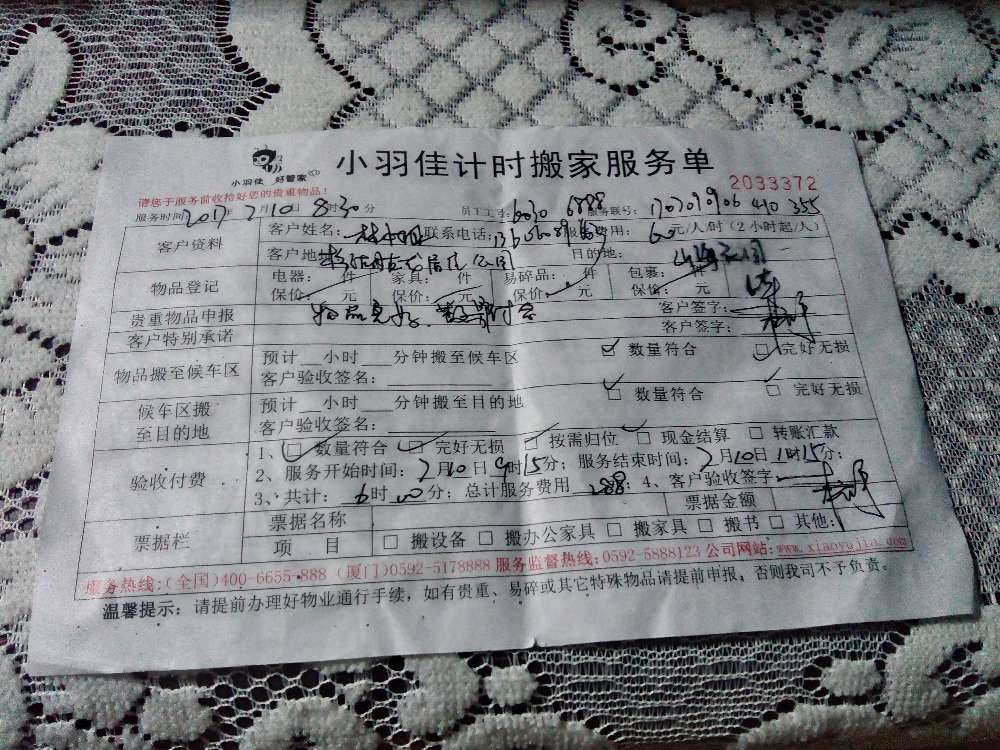 小羽佳 好管家
小羽佳计时搬家服务单
2033372
请您于服务前收拾好您的贵重物品！
服务时间 2017年2月10日8时30分 员工工号: 6030 6888 服务联号: 1702070906 410 355
客户资料 客户姓名: 联系电话: 费用: 60元/人/时(2小时起/人)
客户地 目的地:
物品登记 电器: 件 家具: 件 易碎品: 件 包裹: 件
保价: 元 保价: 元 保价: 元 保价: 元
贵重物品申报 物品完好、数量符合 客户签字:
客户特别承诺 客户签字:
物品搬至候车区 预计___小时___分钟搬至候车区 ☑ 数量符合 ☑ 完好无损
客户验收签名:
候车区搬至目的地 预计___小时___分钟搬至目的地 ☑ 数量符合 ☑ 完好无损
客户验收签名:
验收付费 1、☑ 数量符合 ☑ 完好无损 ☑ 按需归位 ☑ 现金结算 □ 转账汇款
2、服务开始时间: 2月10日9时15分; 服务结束时间: 2月10日1时15分;
3、共计: 6时00分; 总计服务费用 288; 4、客户验收签字
票据栏 票据名称 票据金额
项 目 □ 搬设备 □ 搬办公家具 □ 搬家具 □ 搬书 □ 其他:
服务热线:(全国)400-6655-888 (厦门)0592-5178888 服务监督热线:0592-5888123 公司网站:www.xiaoyujia.com
温馨提示: 请提前办理好物业通行手续，如有贵重、易碎或其它特殊物品请提前申报，否则我司不予负责。